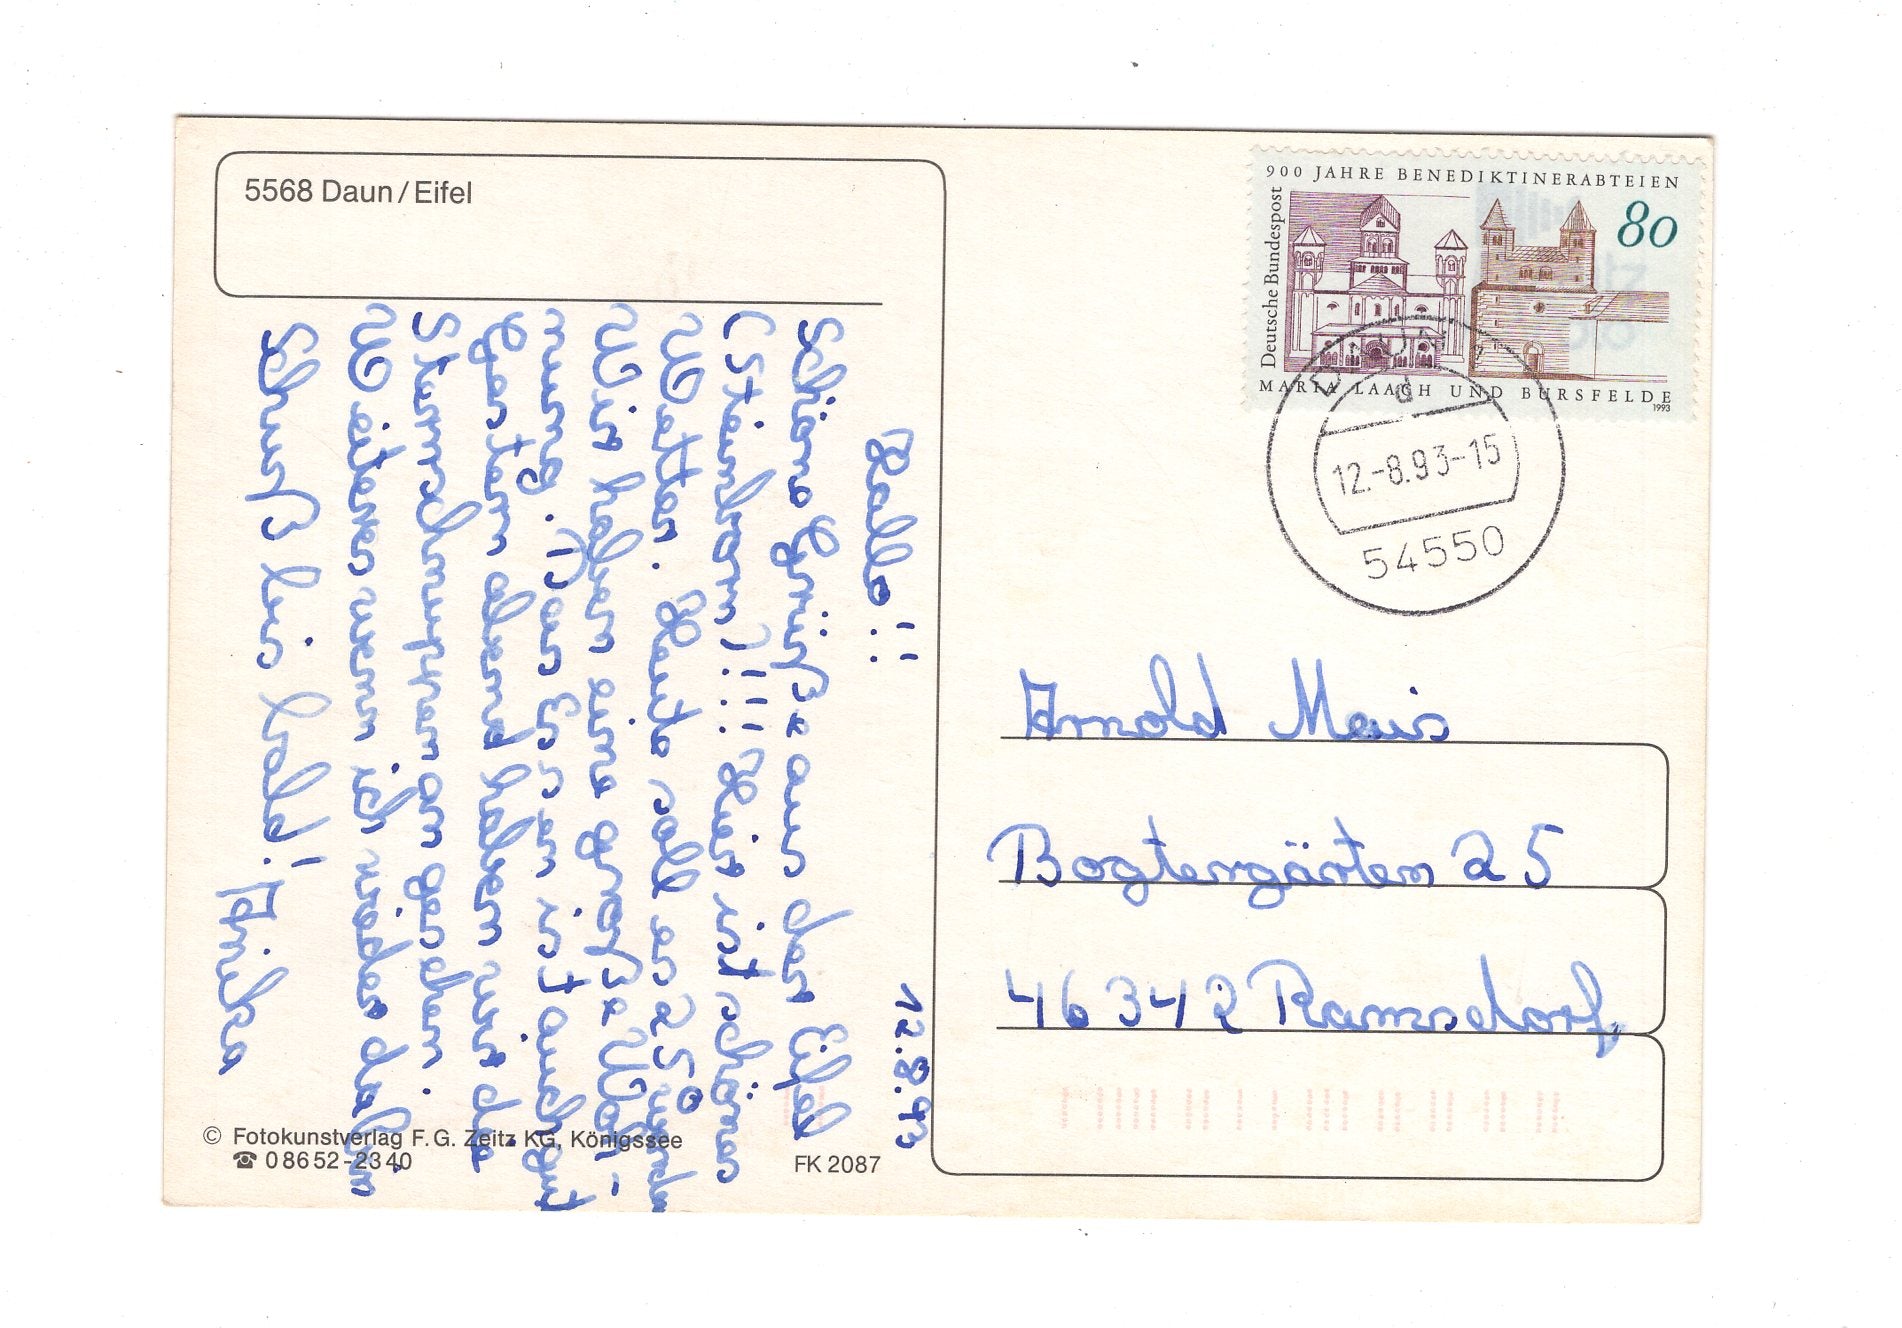 5568 Daun/Eifel
12.8.93
Hallo!!
Schöne Grüße aus der Eifel
(Steinborn)!!!! Hier ist schönes
Wetter. Heute soll es 25° werden
Wir haben eine große Woh-
nung. Das Essen ist auch gut
Gestern abend haben wir da
Stummel angesehen.
Weiteres wenn ich wieder da bin
Schuß bis bald! Annika
© Fotokunstverlag F.G. Zeitz KG, Königssee
☎ 08652-2340
FK 2087
900 JAHRE BENEDIKTINERABTEIEN
Deutsche Bundespost
80
MARIA LAACH UND BURSFELDE
1993
DAUN
d
12.-8.93-15
54550
Arnold Meis
Bogtergärten 25
46342 Ramsdorf